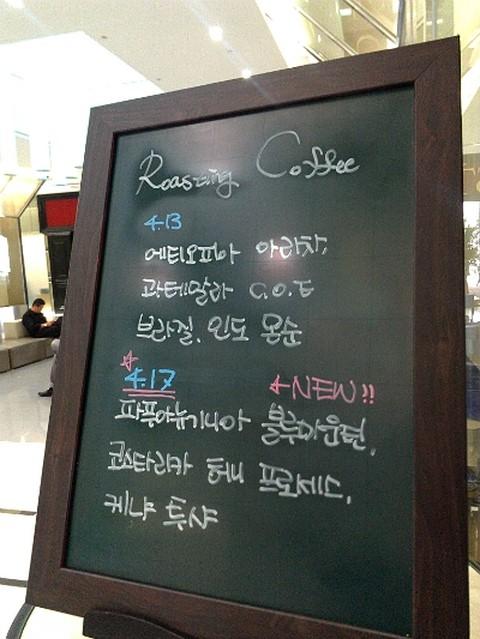 Roasting Coffee
4.13
에티오피아 아리차,
과테말라 C.O.E
브라질, 인도 몽순
4.17 NEW!!
파푸아뉴기니아 블루마운틴,
코스타리카 허니 프로세스,
케냐 투샤